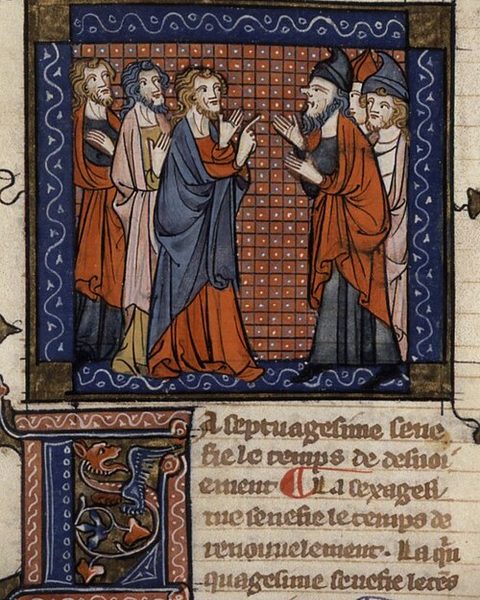 LA septuagesime sene
fie le temps de desuoi
ement ¶ La sexagesi
me senefie le temps de
renouuelement. La qũ
quagesime senefie le tẽs